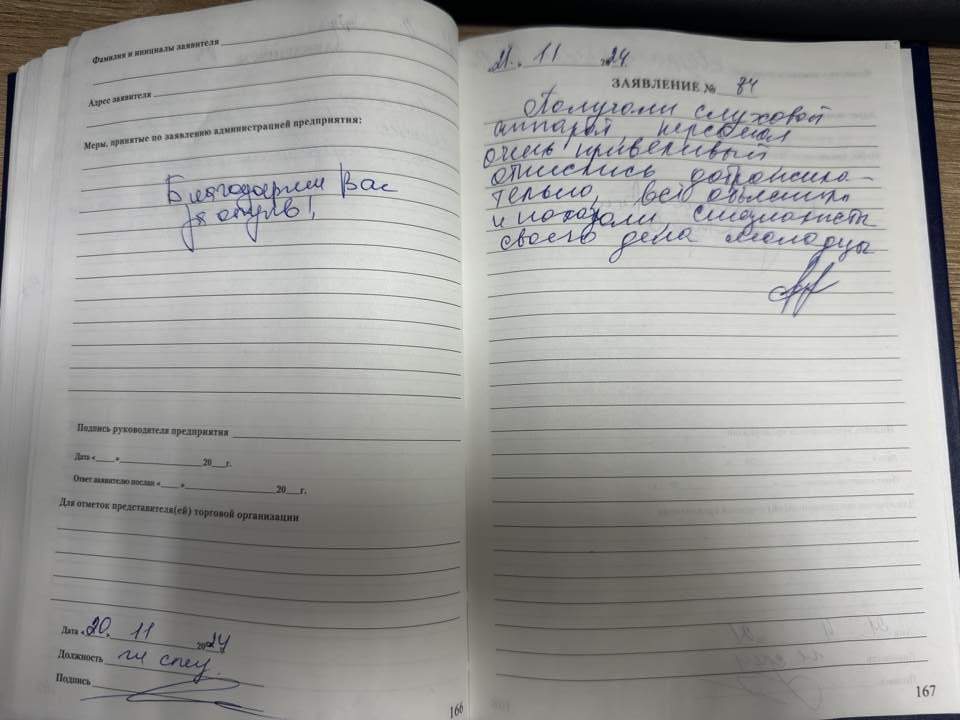 Фамилия и инициалы заявителя
Адрес заявителя
Меры, принятые по заявлению администрацией предприятия:
Благодарим Вас
за отзыв!
Подпись руководителя предприятия
Дата «___»____________20___г.
Ответ заявителю послан «___»____________20___г.
Для отметок представителя(ей) торговой организации
Дата «20. 11 2024
Должность гл спец.
Подпись
166
21. 11 2024
ЗАЯВЛЕНИЕ № 84
Получали слуховой
аппарат, персонал
очень приветливый
отнеслись
всё объяснили
и показали, специалисты
своего дела молодцы
167